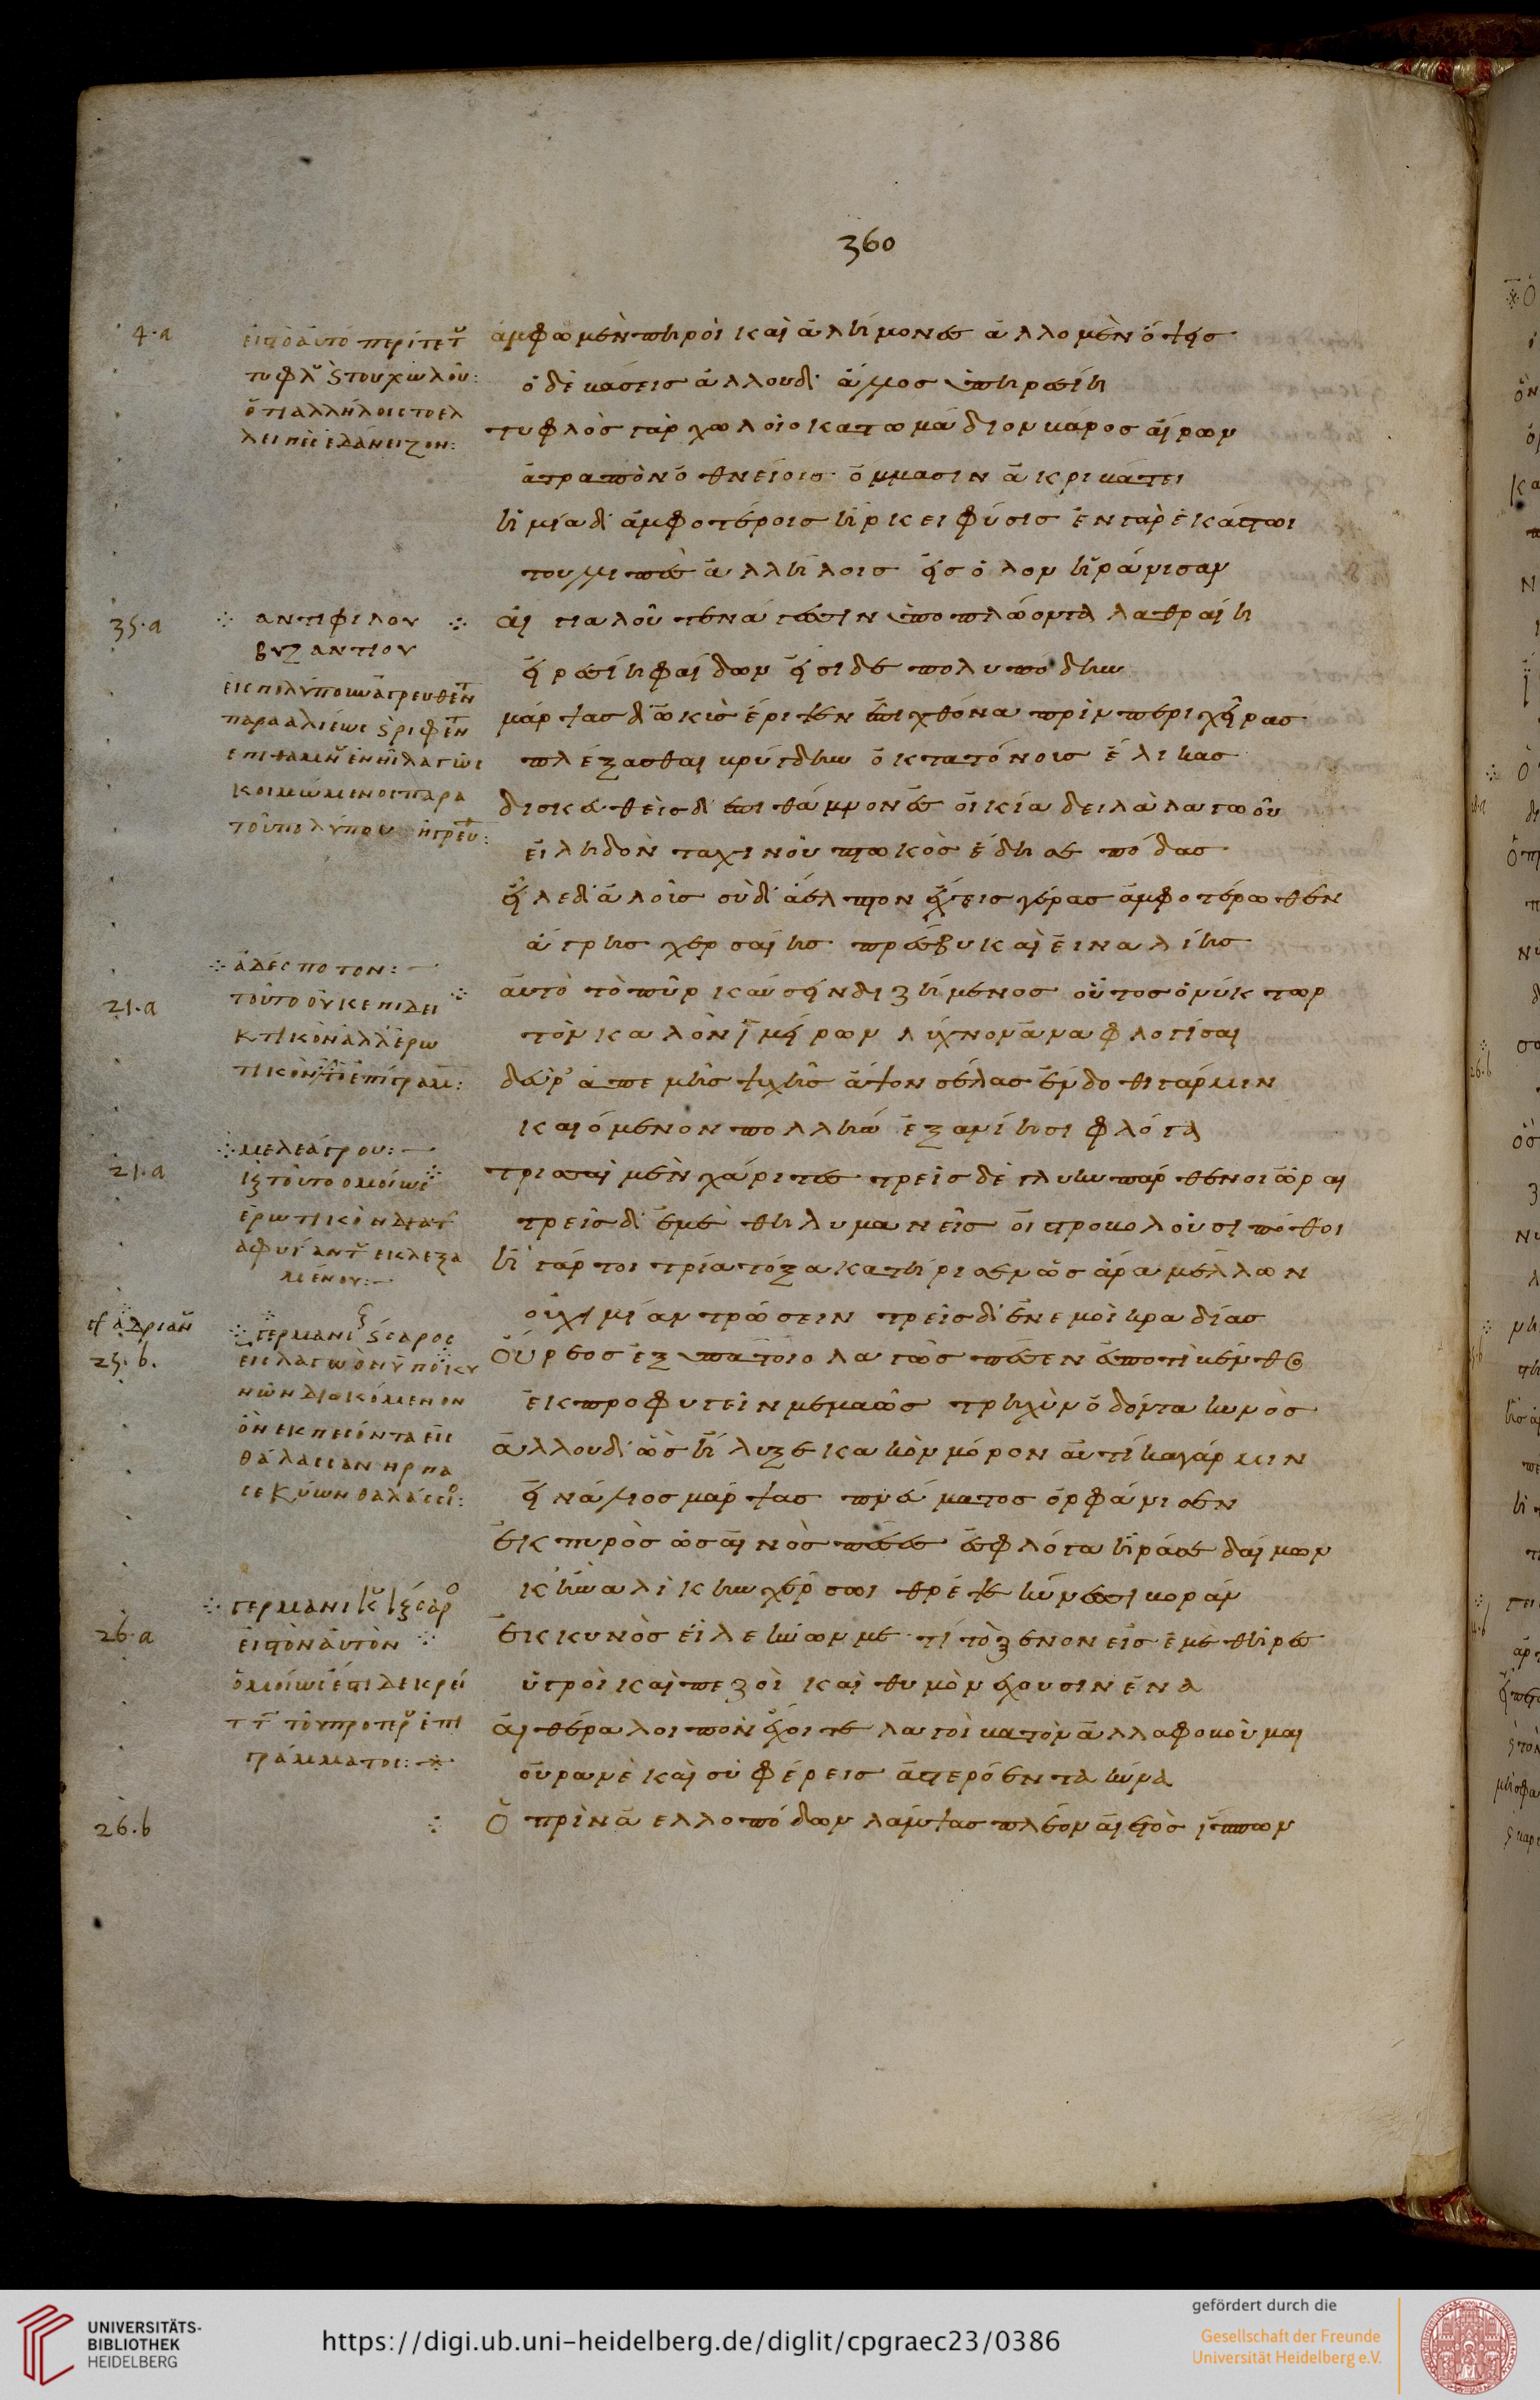 360
4·a
εἰς τὸ ἀυτό περί τε τ
τυφλ ϗ του χωλοῦ:
ὅτι αλλήλοις το ελ
λειπὲς ἐδάνειζον:
ἄμφω μὲν πηροὶ καὶ ἀλήμονες ἀλλο μὲν ὄψεις
ὁ δὲ βάσεις ἄλλου δ' ἄλλος ὑπηρεσίη
τυφλὸς γὰρ χωλοῖο κατωμάδιον βάρος ἄιρων
ἀτραπὸν ὀθνείοις ὄμμασιν ἀκριβάτει
ἡ μία δ' ἀμφοτέροις ἤρκει φύσις ἐν γὰρ ἑκάστωι
τουλλιπὲς ἀλλήλοις εἰς ὅλον ἠράνισαν
35·a
αντιφίλου
βυζαντίου
εἰς πολύπουν ἀγρευθεντ
παρα ἁλιέως ϗ ριφεντ
επι θαμν ἐν ὧι λαγωὸς
κοιμώμενος παρα
τοῦ πολύπου ἠγρευθ:
ἀιγιαλοῦ τενάγεσιν ὑποπλώοντα λαθραίη
εἰρεσίη φαίδων εἴσιδε πολυπόδην
μάρψας δ' ὠκὺς ἔριψεν ἐπι χθόνα πρὶν περι χεῖρας
πλέξασθαι βρύγδην ὀκτατόνοις ἕλικας
δισκευθεὶς δ' ἐπι θάμνον ἐς ὀικία δειλὰ λαγωοῦ
εἰληδὸν ταχινοῦ πτωκὸς ἔδησε πόδας
εἷλε δ' ἁλοῖς σὺ δ' ἄελπτον ἔχεις γέρας ἀμφοτέρωθεν
ἄγρης χερσαίης πρέσβυ καὶ εἰναλίης
ἀδέσποτον:
21·a
τοῦτο οὐκ επιδει
κτικὸν ἀλλ' ἐρω
τικὸν ἐπίγραμ:
ἀυτὸ τὸ πῦρ κάυσειν διζήμενος οὗτος ὁ νύκτωρ
τὸν καλὸν ἱμείρων λύχνον ἀναφλογίσαι
δεῦρ' ἀπ' ε μῆς ψυχῆς ἅψον σέλας ἔνδοθι γάρ μιν
καιόμενον πολλὴν ἐξανίησι φλόγα
μελεάγρου:
21·a
ϗ τοῦτο ὁμοίως
ἐρωτικὸν
μένου:
τρισσαὶ μὲν χάριτες τρεῖς δὲ γλυκυπάρθενοι ὧραι
τρεῖς δ' ἐμὲ θηλυμανεῖς ὀιστροβολοῦσι πόθοι
ἦ γάρ τοι τρία τόξα κατήρισεν ὡς ἄρα μέλλων
οὐχὶ μίαν τρώσειν τρεῖς δ' ἐν ἐμοὶ κραδίας
ἀδριαν
25·b·
γερμανι ϗσαρος
εἰς λαγωὸν ὑπὸ κυ
νῶν διωκόμενον
ὃν εκπεσόντα εἰς
θάλασσαν ηρπα
σε κύων θαλάσσι:
Οὔρεος ἐξ ὑπάτοιο λαγὼς πέσεν ἔς ποτὶ βένθος
ἐκπροφυγεῖν μεμαὼς τρηχὺν ὀδόντα κυνὸς
ἀλλ' ουδ' ὣς ἤλυξε κακὸν μόρον ἀυτίκα γάρ μιν
εἰνάλιος μάρψας πνεύματος ὀρφάνισεν
ἐκ πυρὸς ὡς ἀινὸς πέσες ἐς φλόγα ἦ ῥά σε δαίμων
κὴν ἁλὶ κὴν χέρσωι θρέψε κύνεσσι βοράν
γερμανικ ϗσαρ
26·a
εἰς τὸν ἀυτὸν
ὁμοίως
τοῦ προτερ ἐπι
γράμματος:
ἐκ κυνὸς εἷλε κύων με τί τὸ ξενον εἰς ἐμὲ θῆρες
ὑγροὶ καὶ πεζοὶ καὶ θυμὸν ἔχουσιν ἕνα
ἀιθέρα λοιπὸν ἔχοιτε λαγοὶ βατὸν ἀλλα φοβοῦμαι
οὐρανὲ καὶ σὺ φέρεις ἀστερόεντα κύνα
26·b
Ὁ πρὶν ἀελλοπόδων λάμψας πλέον ἀιετὸς ἵππων
UNIVERSITÄTS-
BIBLIOTHEK
HEIDELBERG
https://digi.ub.uni-heidelberg.de/diglit/cpgraec23/0386
gefördert durch die
Gesellschaft der Freunde
Universität Heidelberg e.V.